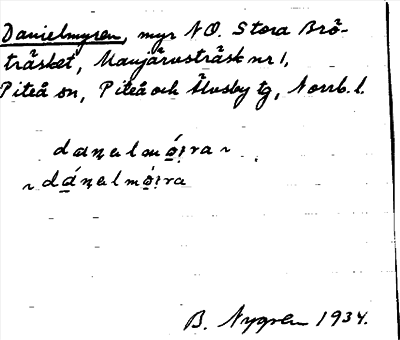 Danielmyren, myr NO. Stora Brö-
träsket, Manjärvsträsk nr 1,
Piteå sn, Piteå och Älvsby tg, Norrb. l.
daṇɐlmọ́i̯ra ~
~ dạ́ṇɐlmọ́i̯ra
B. Nygren 1934.